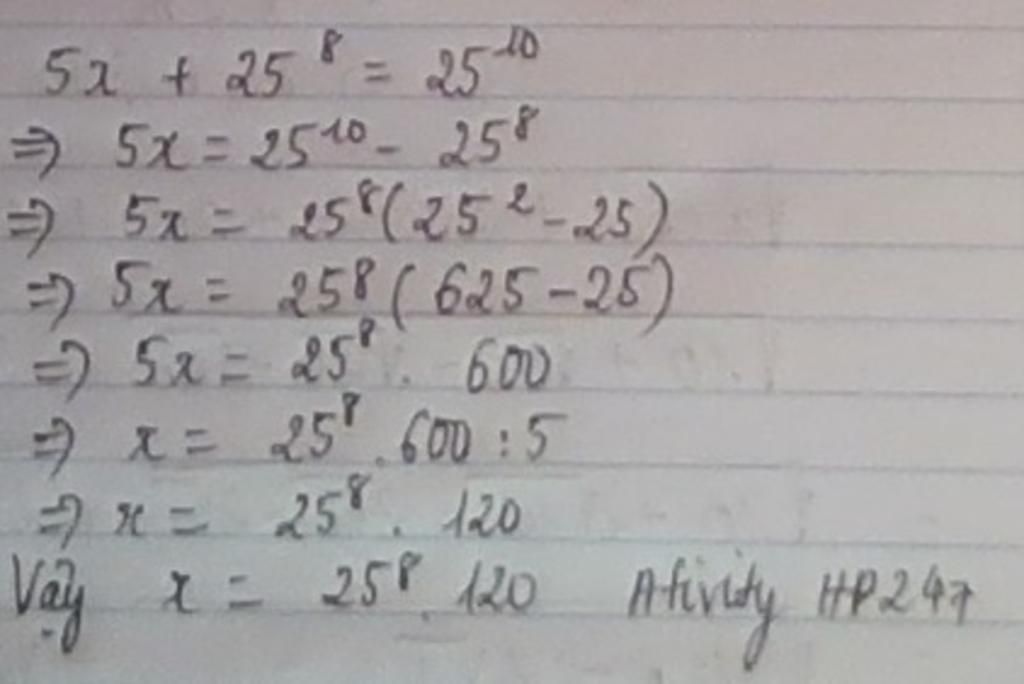 5x + 25⁸ = 25¹⁰
⇒ 5x = 25¹⁰ - 25⁸
⇒ 5x = 25⁸(25² - 25)
⇒ 5x = 25⁸(625 - 25)
⇒ 5x = 25⁸ . 600
⇒ x = 25⁸ . 600 : 5
⇒ x = 25⁸ . 120
Vậy x = 25⁸ . 120 Ativity HP247